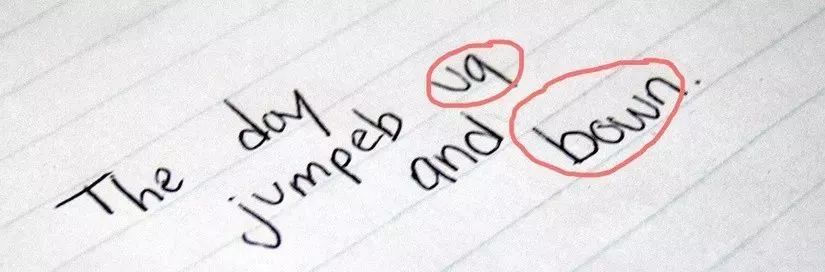 The doy
jumpeb uq
and bown.